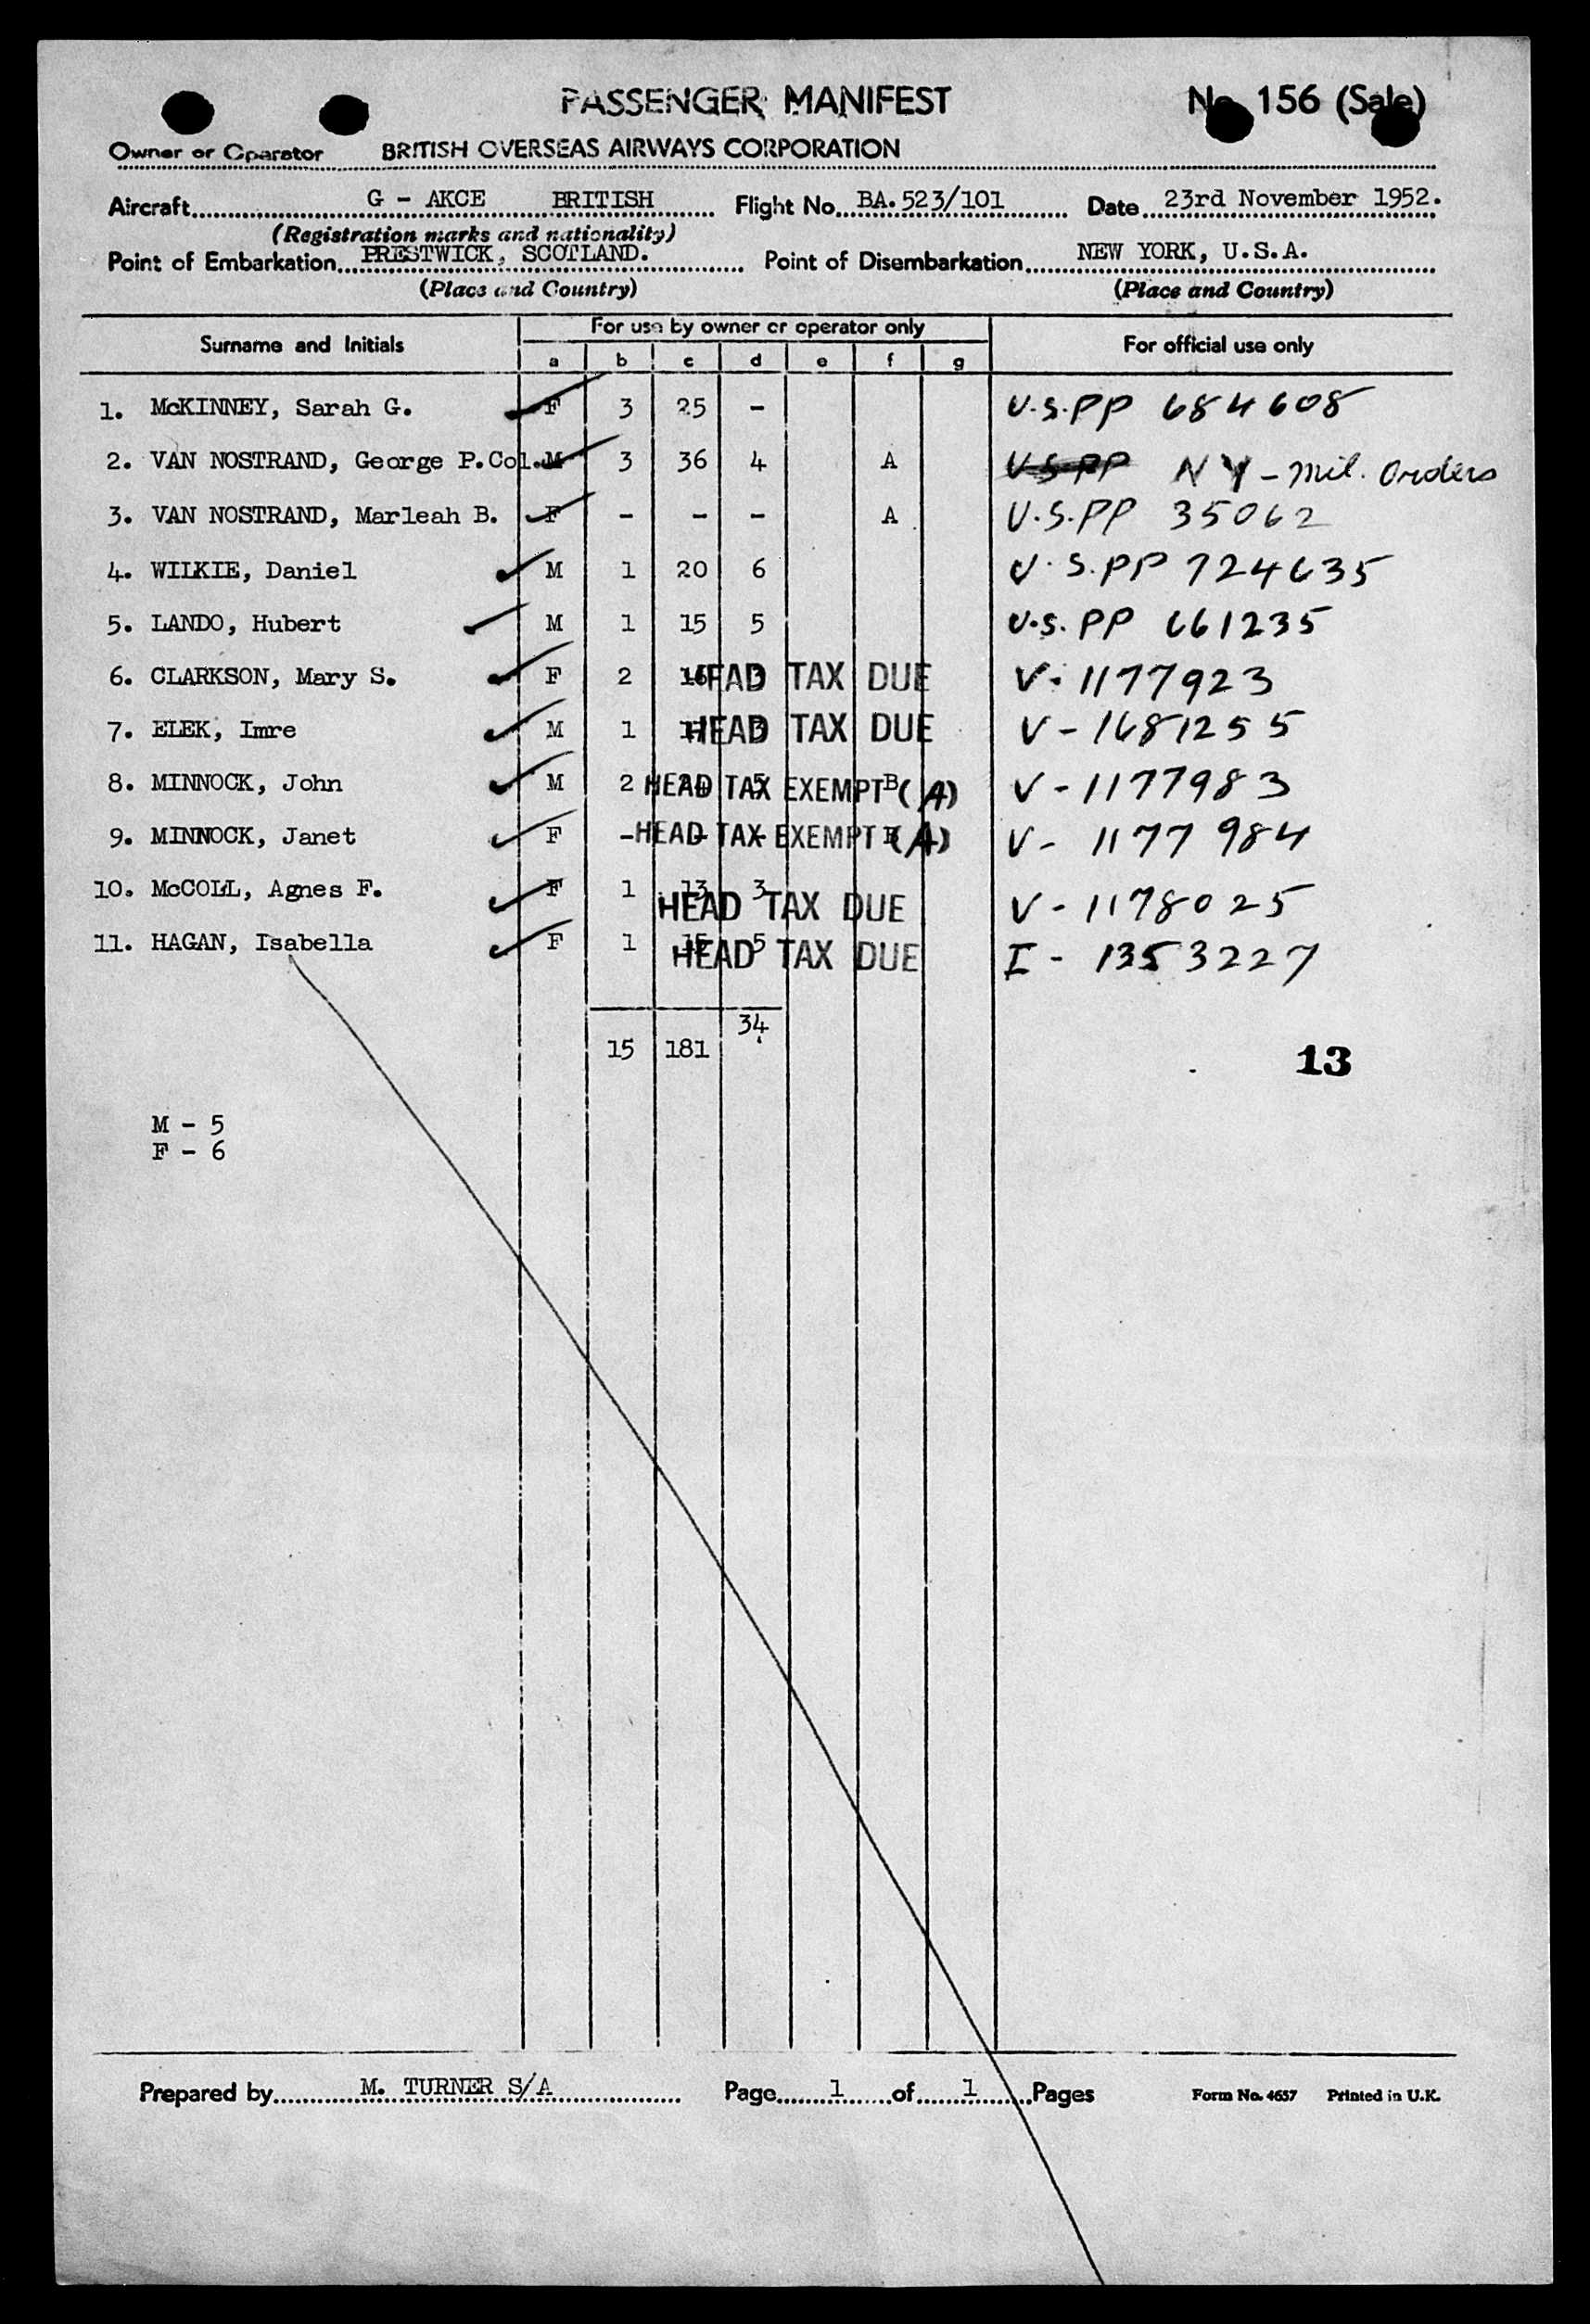 PASSENGER MANIFEST No. 156 (Sale)
Owner or Operator BRITISH OVERSEAS AIRWAYS CORPORATION
Aircraft G - AKCE BRITISH Flight No. BA.523/101 Date 23rd November 1952.
(Registration marks and nationality)
Point of Embarkation PRESTWICK, SCOTLAND. Point of Disembarkation NEW YORK, U.S.A.
(Place and Country) (Place and Country)
Surname and Initials For use by owner or operator only For official use only
a b c d e f g
1. McKINNEY, Sarah G. F 3 25 - U.S.PP 684608
2. VAN NOSTRAND, George P.Col. M 3 36 4 A U.S.PP NY - Mil. Orders
3. VAN NOSTRAND, Marleah B. F - - - A U.S.PP 35062
4. WILKIE, Daniel M 1 20 6 U.S.PP 724635
5. LANDO, Hubert M 1 15 5 U.S.PP 661235
6. CLARKSON, Mary S. F 2 16 3 HEAD TAX DUE V-1177923
7. ELEK, Imre M 1 3 HEAD TAX DUE V-1681255
8. MINNOCK, John M 2 5 B HEAD TAX EXEMPT (A) V-1177983
9. MINNOCK, Janet F - - - B HEAD TAX EXEMPT (A) V-1177984
10. McCOLL, Agnes F. F 1 13 3 HEAD TAX DUE V-1178025
11. HAGAN, Isabella F 1 15 5 HEAD TAX DUE I-1353227
15 181 34
13
M - 5
F - 6
Prepared by M. TURNER S/A Page 1 of 1 Pages Form No. 4657 Printed in U.K.